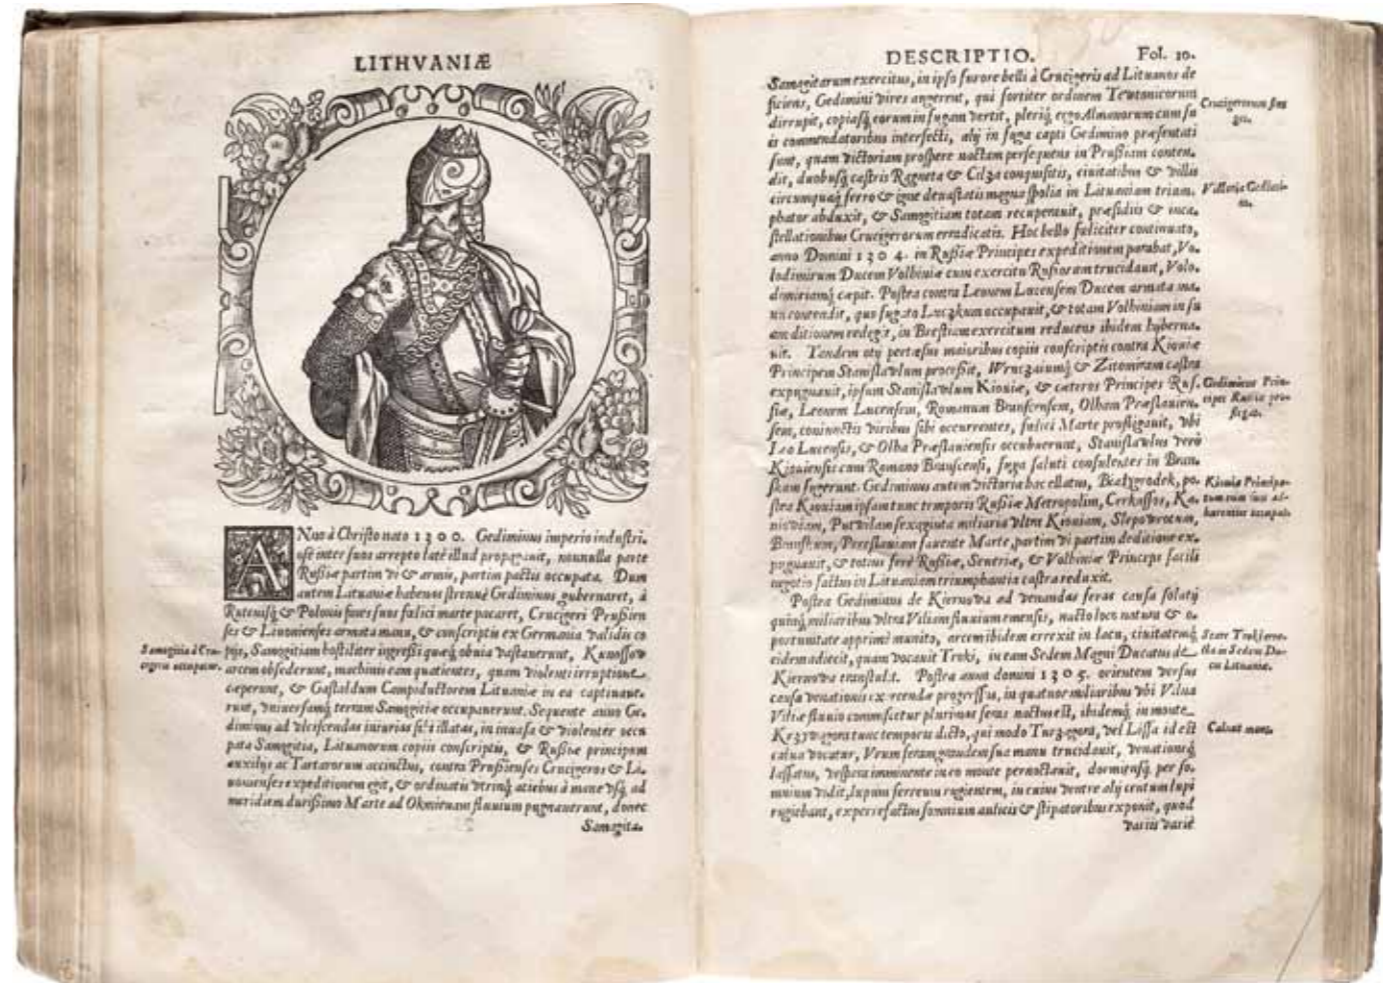 LITHVANIÆ
ANno à Christo nato 1300. Gediminus imperio industri-
osè inter suos arrepto latè illud propagauit, nonnulla parte
Russiæ partim vi & armis, partim pactis occupata. Dum
autem Lituaniæ habenas strenuè Gediminus gubernaret, à
Rutenisq́ & Polonis fines suos fœlici marte pacaret, Crucigeri Prussien
ses & Liuonienses armata manu, & conscriptis ex Germania validis co
Samogitia à Cru-
cigeris occupatur.
pijs, Samogitiam hostiliter ingressi quæq́ obuia vastauerunt, Kunossow
arcem obsederunt, machinis eam quatientes, quam violenti irruptione
cæperunt, & Gastaldum Campiductorem Lituaniæ in ea captiuaue-
runt, vniuersamq́ terram Samogitiæ occupauerunt. Sequente anno Ge-
diminus ad vlciscendas iniurias sibi illatas, in inuasa & violenter occu
pata Samogitia, Lituanorum copiis conscriptis, & Russiæ principum
auxilijs ac Tartarorum accinctus, contra Prussienses Crucigeros & Li-
uonienses expeditionem egit, & ordinatis vtrinq́ aciebus à mane vsq́ ad
meridiem durissimo Marte ad Okmienam fluuium pugnauerunt, donec
Samogita-
DESCRIPTIO.
Fol. 10.
Samogitarum exercitus, in ipso furore belli à Crucigeris ad Lituanos de
ficiens, Gedimini vires angerent, qui fortiter ordinem Tewtonicorum
Crucigerorum
dirrupit, copiasq́ eorum in fugam vertit, pleriq́ ergo Almanorum cum su
is commendatoribus interfecti, alij in fuga capti Gedimino præsentati
sunt, quam victoriam prospere nactam persequens in Prussiam conten-
dit, duobusq́ castris Ragneta & Cilza conquisitis, ciuitatibus & villis
circumquaq́ ferro & igne deuastatis magna spolia in Lituaniam trium-
Victoria Gedimi-
ni.
phator abduxit, & Samogitiam totam recuperauit, præsidiis & inca-
stellationibus Crucigerorum erradicatis. Hoc bello fœliciter continuato,
anno Domini 1304. in Russiæ Principes expeditionem parabat, Vo-
lodimirum Ducem Volhiniæ cum exercitu Russorum trucidauit, Volo-
dimiriamq́ cæpit. Postea contra Leonem Lucensem Ducem armata ma-
nu contendit, quo fugato Luczkum occupauit, & totam Volhiniam in su
am ditionem redegit, in Brestiam exercitum reducens ibidem hyberna-
uit. Tandem otij pertæsus maioribus copiis conscriptis contra Kiouiæ
Principem Stanislawum processit, Wruczaiumq́ & Zitomiram castra
expugnauit, ipsum Stanislawum Kiouiæ, & cæteros Principes Rus-
Gediminus Prin-
cipes Russiæ pro-
fligat.
siæ, Leonem Lucensem, Romanum Branscensem, Olham Præslauien-
sem, coniunctis viribus sibi occurrentes, fœlici Marte profligauit, vbi
Leo Lucensis, & Olha Præslauiensis occubuerunt, Stanislawus verò
Kiouiensis cum Romano Branscensi, fuga saluti consulentes in Bran-
skam fugerunt. Gediminus autem victoria hac ellatus, Białygrodek, po-
Kiouiæ Principa-
tum cum suis ad-
hærentiis occupat.
stea Kiouiam ipsam tunc temporis Russiæ Metropolim, Cerkassos, Ka-
niouiam, Putwilam sexaginta miliaria vltra Kiouiam, Slepowrotum,
Branskum, Pereslauiam fauente Marte, partim vi partim deditione ex-
pugnauit, & totius ferè Russiæ, Seueriæ, & Volhiniæ Princeps facili
negotio factus in Lituaniam triumphantia castra reduxit.
Postea Gediminus de Kiernowa ad venandas feras causa solatij
quinq́ miliaribus vltra Viliam fluuium emensis, nacto loco natura & o-
portunitate apprimè munito, arcem ibidem errexit in lacu, ciuitatemq́
eidem adiecit, quam vocauit Troki, in eam Sedem Magni Ducatus de
Kiernowa transtulit. Postea anno domini 1305. orientem versus
causa venationis exercendæ progressus, in quatuor miliaribus vbi Vilna
Viliæ fluuio commiscetur plurimas feras nactus est, ibidemq́ in monte
Krzywagora tunc temporis dicto, qui modo Turzagora, vel Lyssa id est
Caluus mons.
calua vocatur, Vrum feram grandem sua manu trucidauit, venationeq́
lassatus, vespera imminente in eo monte pernoctauit, dormiensq́ per so-
mnium vidit, lupum ferreum rugientem, in cuius ventre alij centum lupi
rugiebant, experrefactus somnium aulicis & stipatoribus exponit, quod
variis variè